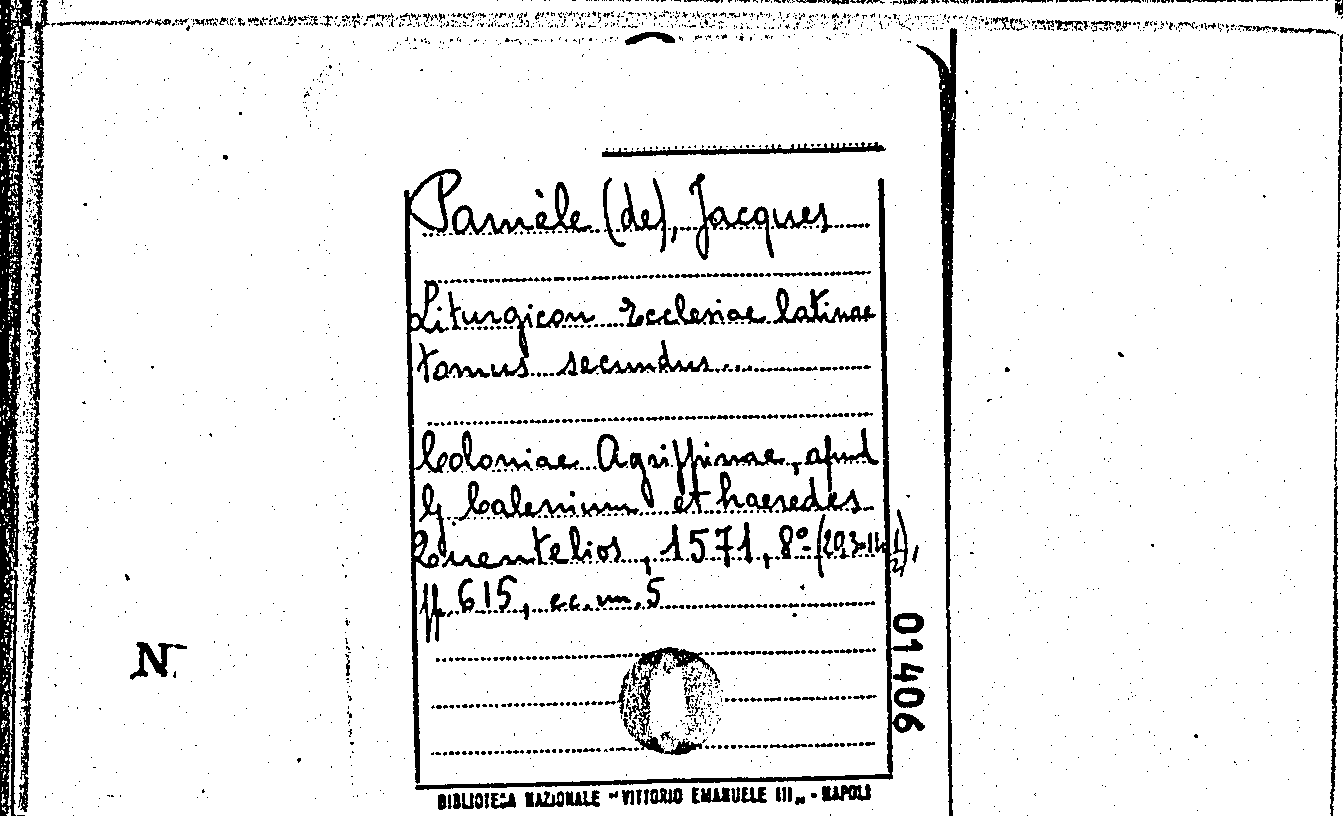 Pamèle (de), Jacques
Liturgicon Ecclesiae latinae
tomus secundus...
Coloniae Agrippinae, apud
G. Calenium et haeredes
Quentelios, 1571, 8º
ff. 615, ec. nn. 5
01406
N
BIBLIOTECA NAZIONALE "VITTORIO EMANUELE III„ - NAPOLI